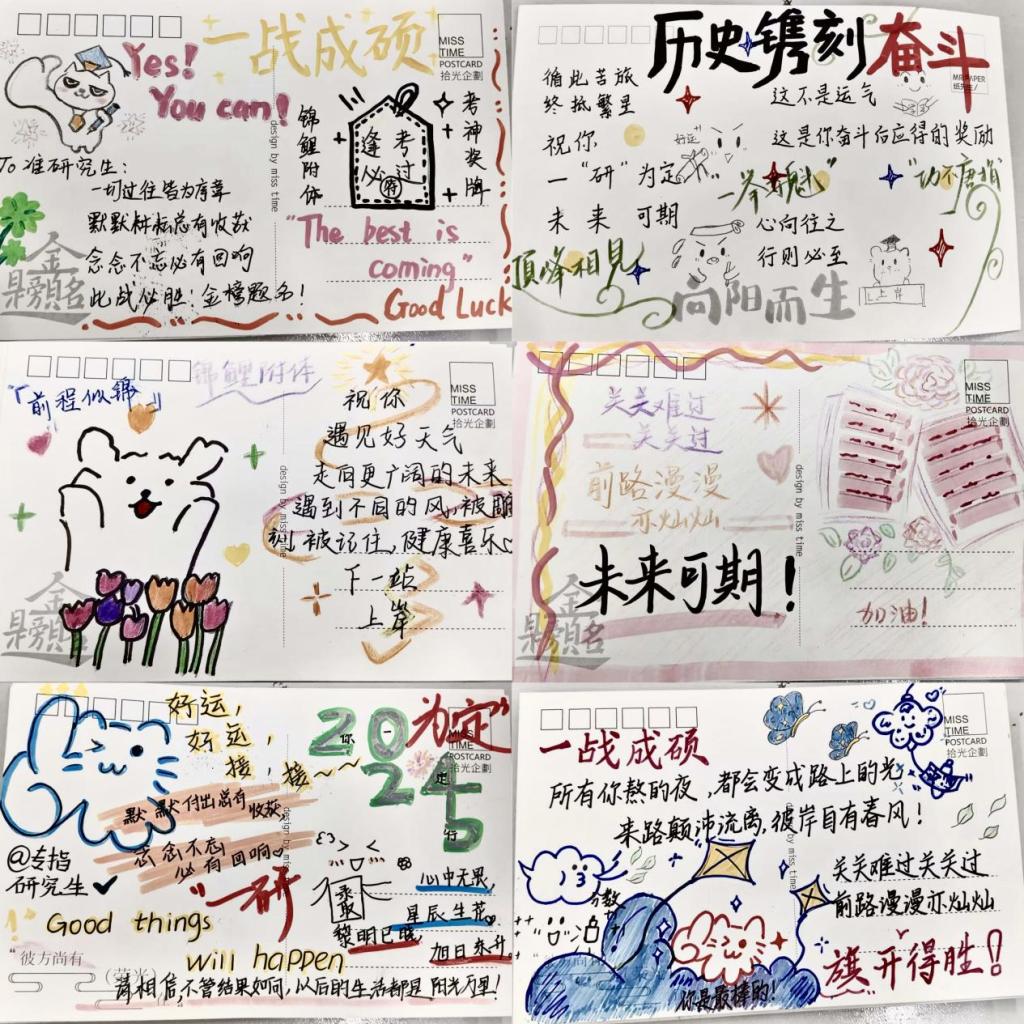 Yes!
You can!
一战成硕
MISS
TIME
POSTCARD
拾光企劃
To 准研究生：
一切过往皆为序章
默默耕耘总有收获
念念不忘必有回响
此战必胜！金榜题名！
金
榜題名
design by miss time
锦鲤附体
逢考
必过
符
考神奖牌
"The best is
coming"
Good Luck
历史镌刻奋斗
MR.PAPER
纸先生
循此苦旅
终抵繁星
祝你
一"研"为定
未来可期
好运
这不是运气
这是你奋斗后应得的奖励
一举夺魁"
"功不唐捐"
心向往之
行则必至
顶峰相见
向阳而生
上岸
「前程似锦」
锦鲤附体
MISS
TIME
POSTCARD
拾光企劃
祝你
遇见好天气
走向更广阔的未来
遇到不同的风，被雕
刻，被记住，健康喜乐
下一站
上岸
design by miss time
金
榜題名
关关难过
关关过
前路漫漫
亦灿灿
未来可期！
金
榜題名
design by miss time
MISS
TIME
POSTCARD
拾光企劃
加油！
好运，
好运，
接，接~~
默默付出总有收获，
念念不忘
必有回响
@专指
研究生
"一研
为定"
2025
你一定行
MISS
TIME
POSTCARD
拾光企劃
design by miss time
Good things
will happen
黎明已晓
心中无畏
星辰生花
旭日东升
"彼方尚有
(荣光)
请相信，不管结果如何，以后的生活都是阳光万里！
一战成硕
MISS
TIME
POSTCARD
拾光企劃
所有你熬的夜，都会变成路上的光
来路颠沛流离，彼岸自有春风！
关关难过关关过
前路漫漫亦灿灿
旗开得胜！
design by miss time
你是最棒的！